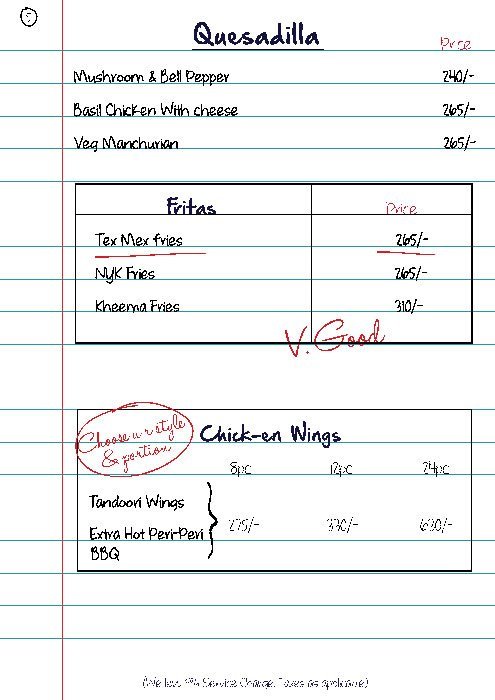 Quesadilla
Price
Mushroom & Bell Pepper 240/-
Basil Chicken With cheese 265/-
Veg Manchurian 265/-
Fritas Price
Tex Mex fries 265/-
NYK Fries 265/-
Kheema Fries 310/-
V. Good
Choose u r style
& portion
Chick-en Wings
8pc 12pc 24pc
Tandoori Wings
Extra Hot Peri-Peri
BBQ
(We levy Service Charge. Taxes as applicable)